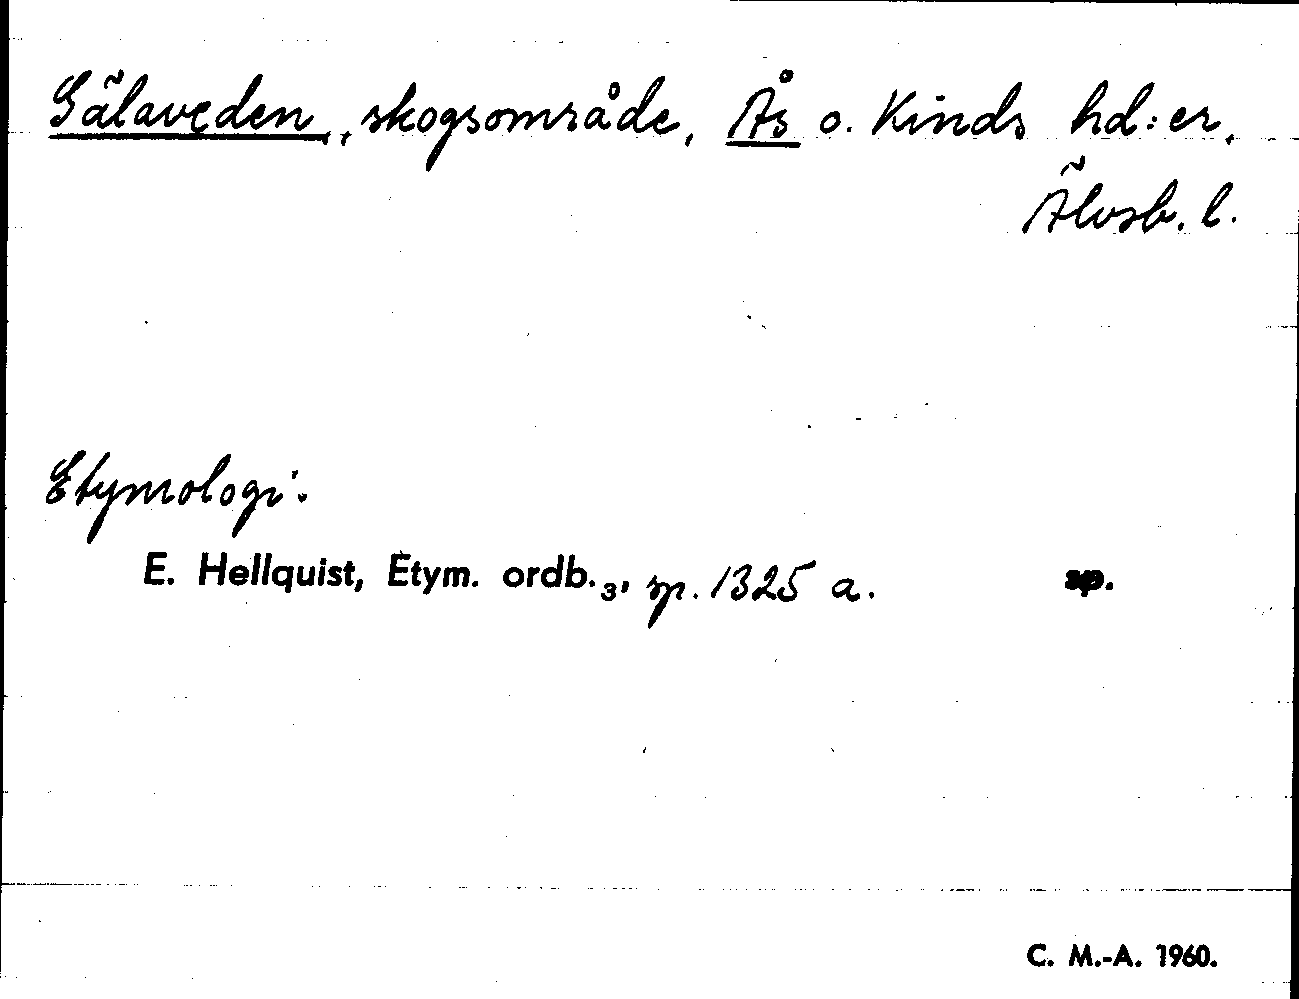 Sälaveden, skogsområde, Ås o. Kinds hd:er,
Älvsb. l.
Etymologi:
E. Hellquist, Etym. ordb. 3, sp. 1325 a. sp.
C. M.-A. 1960.